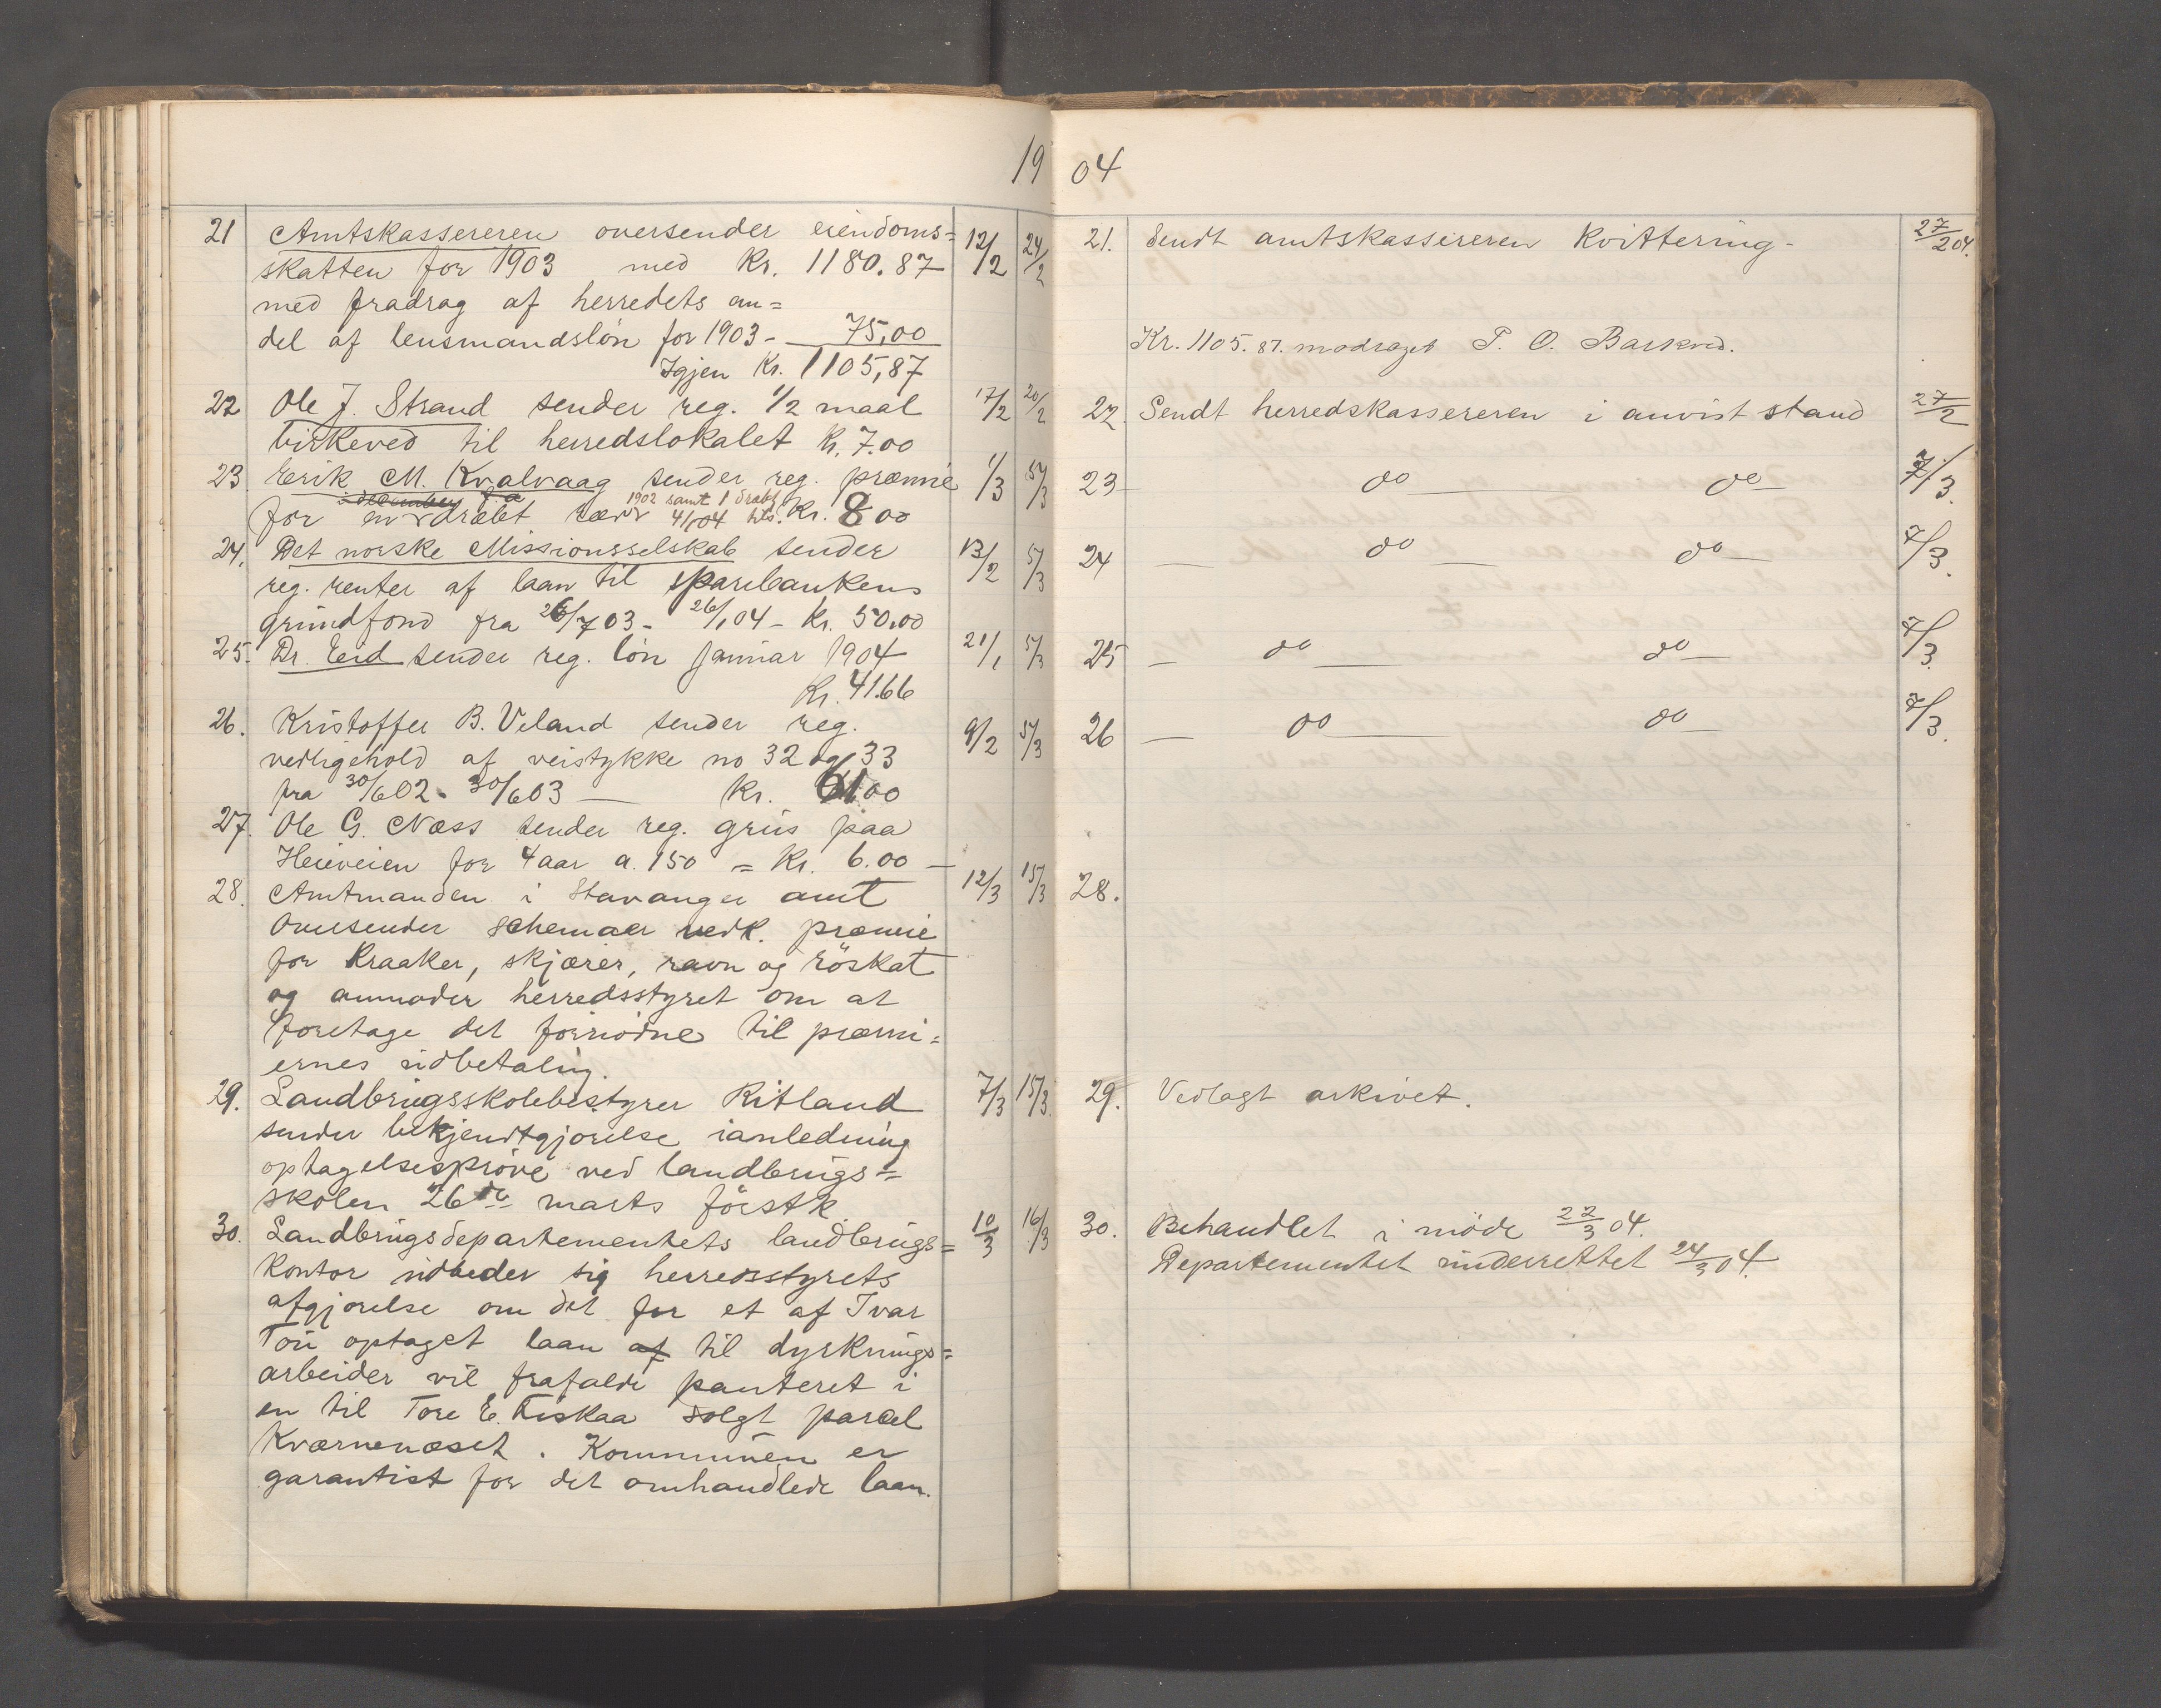 19 04
21 Amtskassereren oversender eiendoms= 12/2 24/2
skatten for 1903 med Kr. 1180.87
med fradrag af herredets an=
del af lensmandsløn for 1903 - 75,00
Igjen Kr. 1105,87
22 Ole J. Strand sender reg. 1/2 maal 17/2 20/2
birkeved til herredslokalet Kr. 7.00
23 Erik M. Kvalvaag sender reg. præmie 1/3 5/3
december f.a 1902 samt 1 dræbt
for en dræbt ræv 4/1 04 Kr. 8 00
24. Det norske Missionsselskab sender 13/2 5/3
reg. renter af laan til sparebankens
grundfond fra 26/7 03 - 26/1 04 - Kr. 50.00
25. Dr. Eid sender reg. løn januar 1904 21/1 5/3
Kr. 41.66
26. Kristoffer B. Veland sender reg. 9/2 5/3
vedligehold af veistykke no 32 og 33
fra 30/6 02 - 30/6 03 — Kr. 61.00
27. Ole G. Næss sender reg. grus paa
Heieveien for 4 aar a. 150 = Kr. 6.00 —
28. Amtmanden i Stavanger amt 12/3 15/3
oversender schemaer vedk. præmie
for kraaker, skjærer, ravn og röskat
og anmoder herredsstyret om at
foretage det fornødne til præmi=
ernes udbetaling.
29. Landbrugsskolebestyrer Ritland 7/3 15/3
sender bekjendtgjørelse ianledning
optagelsespröve ved landbrugs=
skolen 26de marts förstk.
30. Landbrugsdepartementets landbrugs= 10/3 16/3
kontor udbeder sig herredsstyrets
afgjørelse om det for et af Ivar
Tou optaget laan af til dyrknings=
arbeider vil frafalde panteret i
en til Tore E. Fiskaa solgt parcel
Kværnenæset. Kommunen er
garantist for det omhandlede laan.
21. Sendt amtskassereren kvittering - 27/2 04.
Kr. 1105.87. modtaget P. O. Barkved.
22. Sendt herredskassereren i anvist stand 27/2
23 — do — do — 7/3.
24 — do — do — 7/3.
25 — do — do — 7/3.
26 — do — do — 7/3.
28.
29. Vedlagt arkivet.
30. Behandlet i möde 22/3 04.
Departementet underrettet 24/3 04.